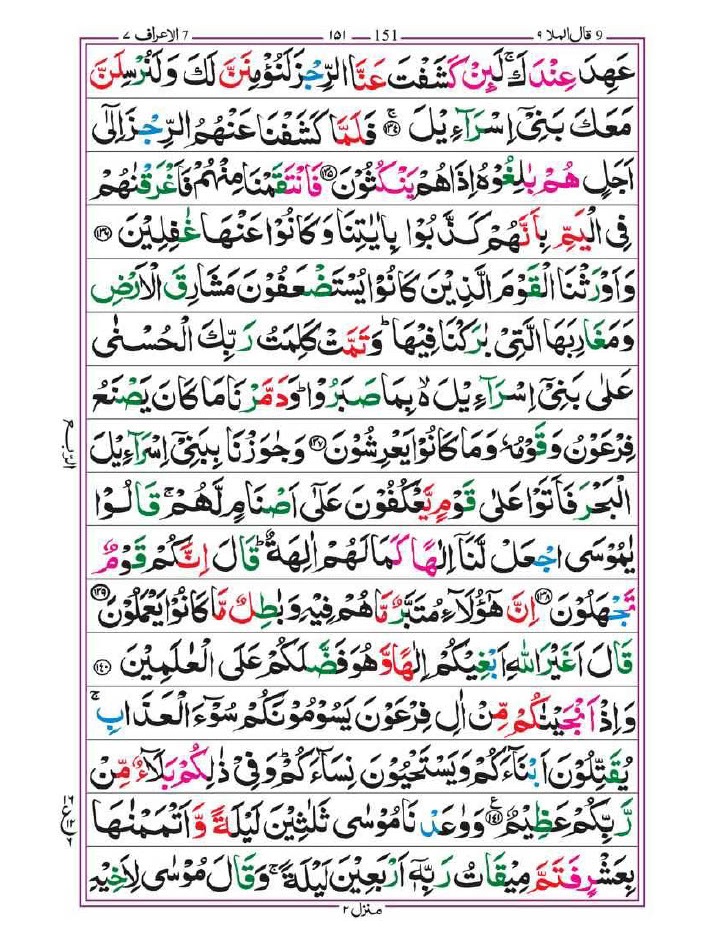 9 قال الملا ٩ 151 — ١٥١ 7 الاعراف ٧
عَهِدَ عِنْدَكَ ۚ لَئِنْ كَشَفْتَ عَنَّا الرِّجْزَ لَنُؤْمِنَنَّ لَكَ وَلَنُرْسِلَنَّ
مَعَكَ بَنِىْۤ اِسْرَآءِيْلَ ۚ ﴿۱۳۴﴾ فَلَمَّا كَشَفْنَا عَنْهُمُ الرِّجْزَ اِلٰٓى
اَجَلٍ هُمْ بٰلِغُوْهُ اِذَا هُمْ يَنْكُثُوْنَ ﴿۱۳۵﴾ فَانْتَقَمْنَا مِنْهُمْ فَاَغْرَقْنٰهُمْ
فِى الْيَمِّ بِاَنَّهُمْ كَذَّبُوْا بِاٰيٰتِنَا وَكَانُوْا عَنْهَا غٰفِلِيْنَ ﴿۱۳۶﴾
وَاَوْرَثْنَا الْقَوْمَ الَّذِيْنَ كَانُوْا يُسْتَضْعَفُوْنَ مَشَارِقَ الْاَرْضِ
وَمَغَارِبَهَا الَّتِىْ بٰرَكْنَا فِيْهَا ؕ وَتَمَّتْ كَلِمَتُ رَبِّكَ الْحُسْنٰى
عَلٰى بَنِىْۤ اِسْرَآءِيْلَ ۙ بِمَا صَبَرُوْا ؕ وَدَمَّرْنَا مَا كَانَ يَصْنَعُ
فِرْعَوْنُ وَقَوْمُهٗ وَمَا كَانُوْا يَعْرِشُوْنَ ﴿۱۳۷﴾ وَجٰوَزْنَا بِبَنِىْۤ اِسْرَآءِيْلَ
الربع
الْبَحْرَ فَاَتَوْا عَلٰى قَوْمٍ يَّعْكُفُوْنَ عَلٰٓى اَصْنَامٍ لَّهُمْ ۚ قَالُوْا
يٰمُوْسَى اجْعَلْ لَّنَاۤ اِلٰهًا كَمَا لَهُمْ اٰلِهَةٌ ؕ قَالَ اِنَّكُمْ قَوْمٌ
تَجْهَلُوْنَ ﴿۱۳۸﴾ اِنَّ هٰٓؤُلَآءِ مُتَبَّرٌ مَّا هُمْ فِيْهِ وَبٰطِلٌ مَّا كَانُوْا يَعْمَلُوْنَ ﴿۱۳۹﴾
قَالَ اَغَيْرَ اللّٰهِ اَبْغِيْكُمْ اِلٰهًا وَّهُوَ فَضَّلَكُمْ عَلَى الْعٰلَمِيْنَ ﴿۱۴۰﴾
وَاِذْ اَنْجَيْنٰكُمْ مِّنْ اٰلِ فِرْعَوْنَ يَسُوْمُوْنَكُمْ سُوْٓءَ الْعَذَابِ ۚ
يُقَتِّلُوْنَ اَبْنَآءَكُمْ وَيَسْتَحْيُوْنَ نِسَآءَكُمْ ؕ وَفِىْ ذٰلِكُمْ بَلَآءٌ مِّنْ
رَّبِّكُمْ عَظِيْمٌ ﴿۱۴۱﴾ وَوٰعَدْنَا مُوْسٰى ثَلٰثِيْنَ لَيْلَةً وَّاَتْمَمْنٰهَا
بِعَشْرٍ فَتَمَّ مِيْقَاتُ رَبِّهٖۤ اَرْبَعِيْنَ لَيْلَةً ۚ وَقَالَ مُوْسٰى لِاَخِيْهِ
منزل ٢